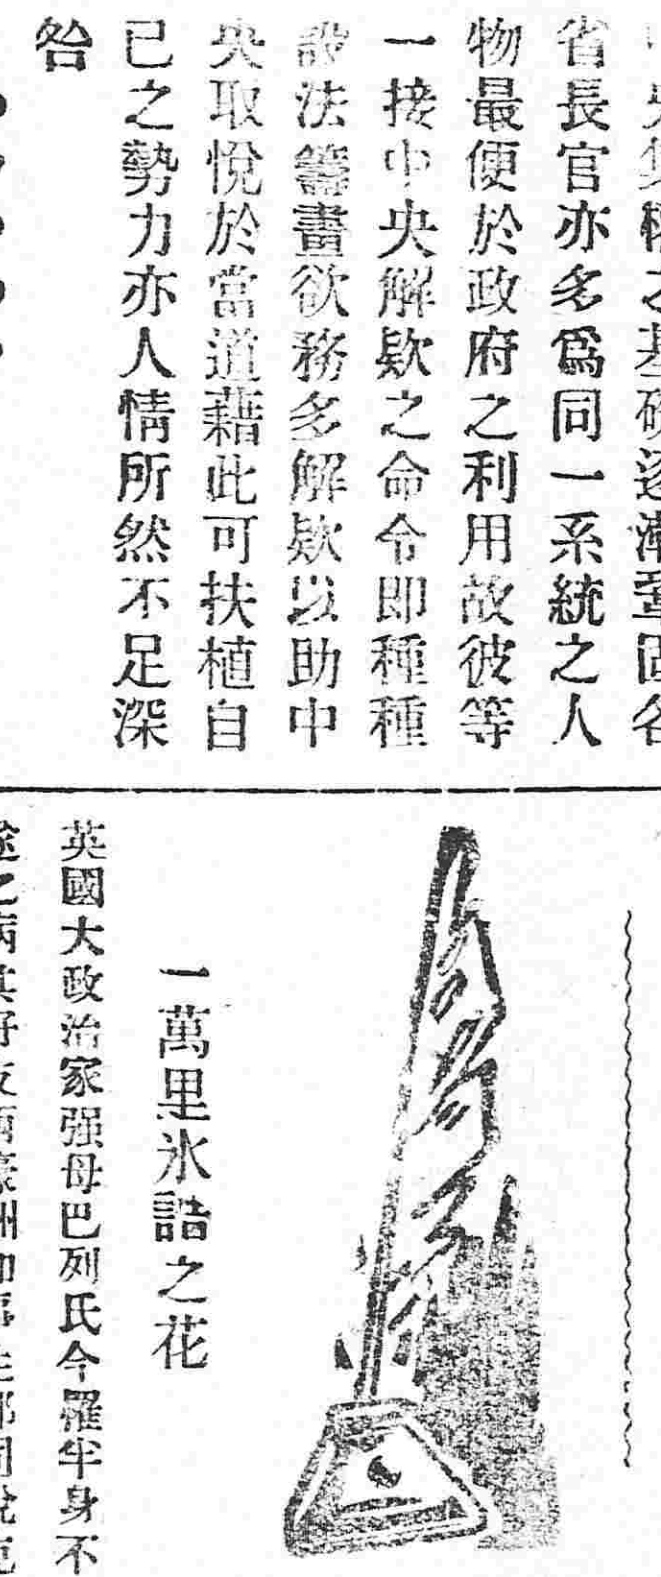 中央集權之基礎逐漸鞏固各
省長官亦多爲同一系統之人
物最便於政府之利用故彼等
一接中央解欵之命令即種種
設法籌畫欲務多解欵以助中
央取悅於當道藉此可扶植自
已之勢力亦人情所然不足深
咎
一萬里氷誥之花
英國大政治家强母巴列氏今罹半身不